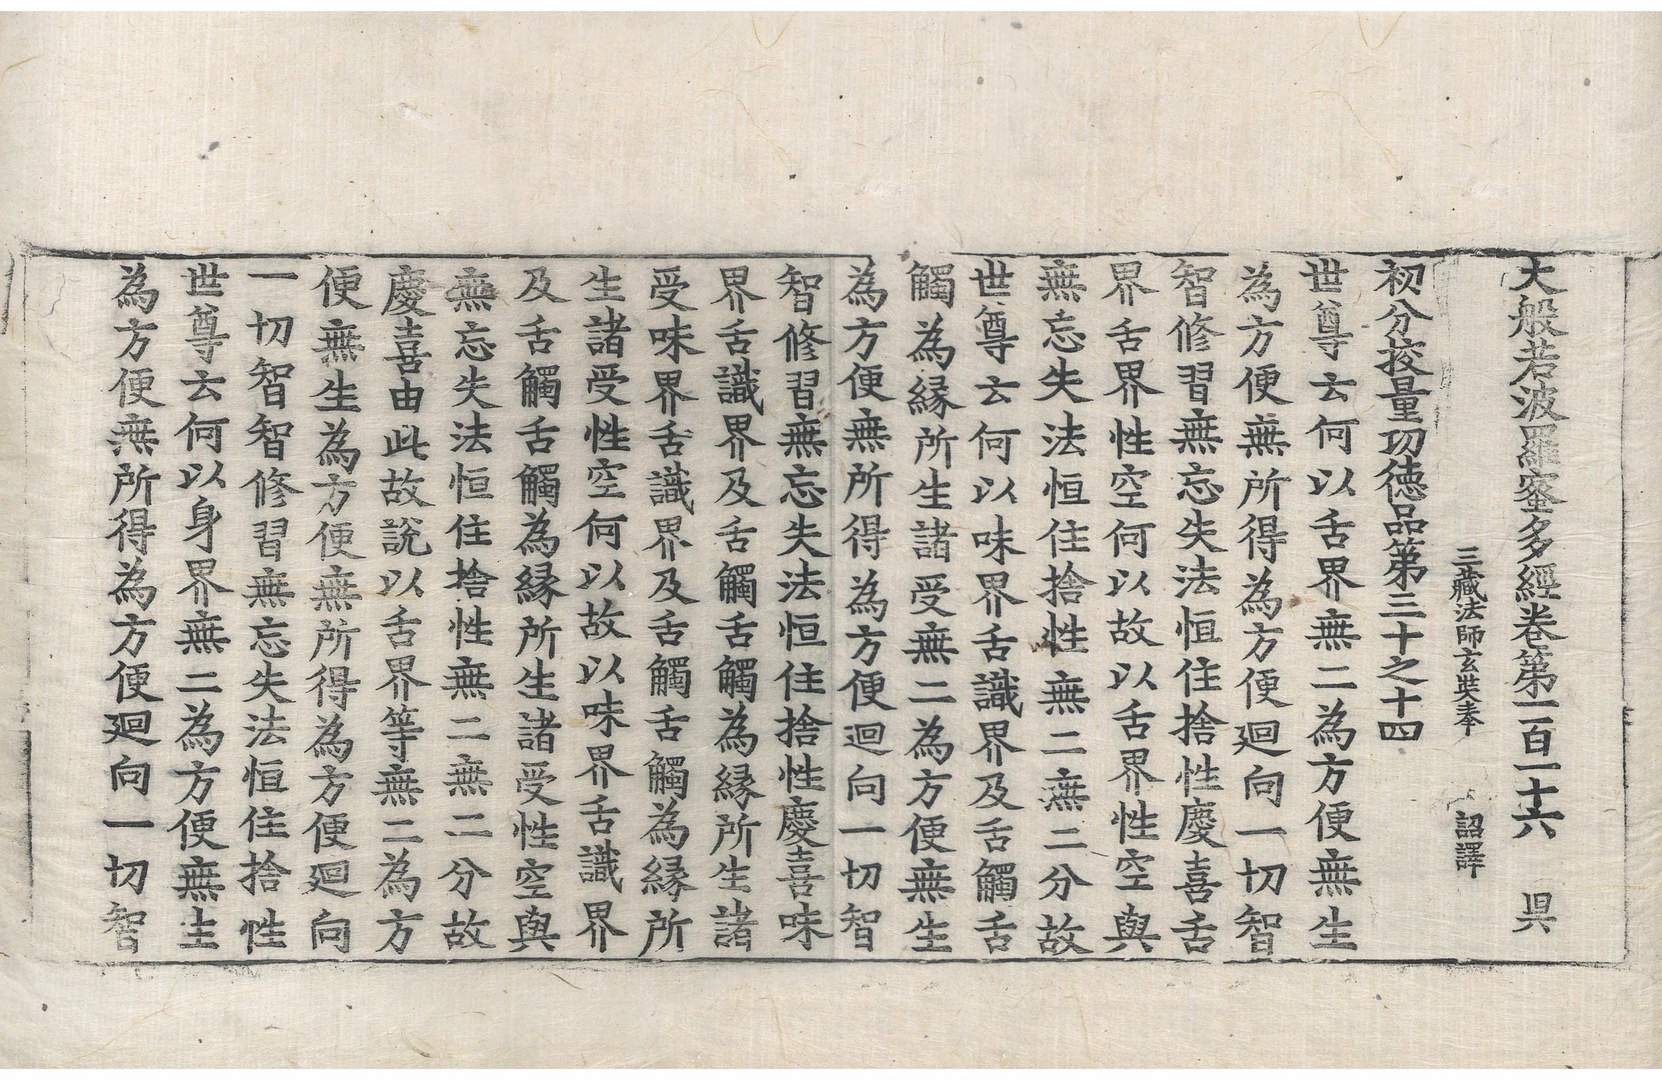 大般若波羅蜜多經卷第一百一十六 昃
三藏法師玄奘奉 詔譯
初分挍量功德品第三十之十四
世尊云何以舌界無二為方便無生
為方便無所得為方便廻向一切智
智修習無忘失法恒住捨性慶喜舌
界舌界性空何以故以舌界性空與
無忘失法恒住捨性無二無二分故
世尊云何以味界舌識界及舌觸舌
觸為緣所生諸受無二為方便無生
為方便無所得為方便廻向一切智
智修習無忘失法恒住捨性慶喜味
界舌識界及舌觸舌觸為緣所生諸
受味界舌識界及舌觸舌觸為緣所
生諸受性空何以故以味界舌識界
及舌觸舌觸為緣所生諸受性空與
無忘失法恒住捨性無二無二分故
慶喜由此故說以舌界等無二為方
便無生為方便無所得為方便廻向
一切智智修習無忘失法恒住捨性
世尊云何以身界無二為方便無生
為方便無所得為方便廻向一切智